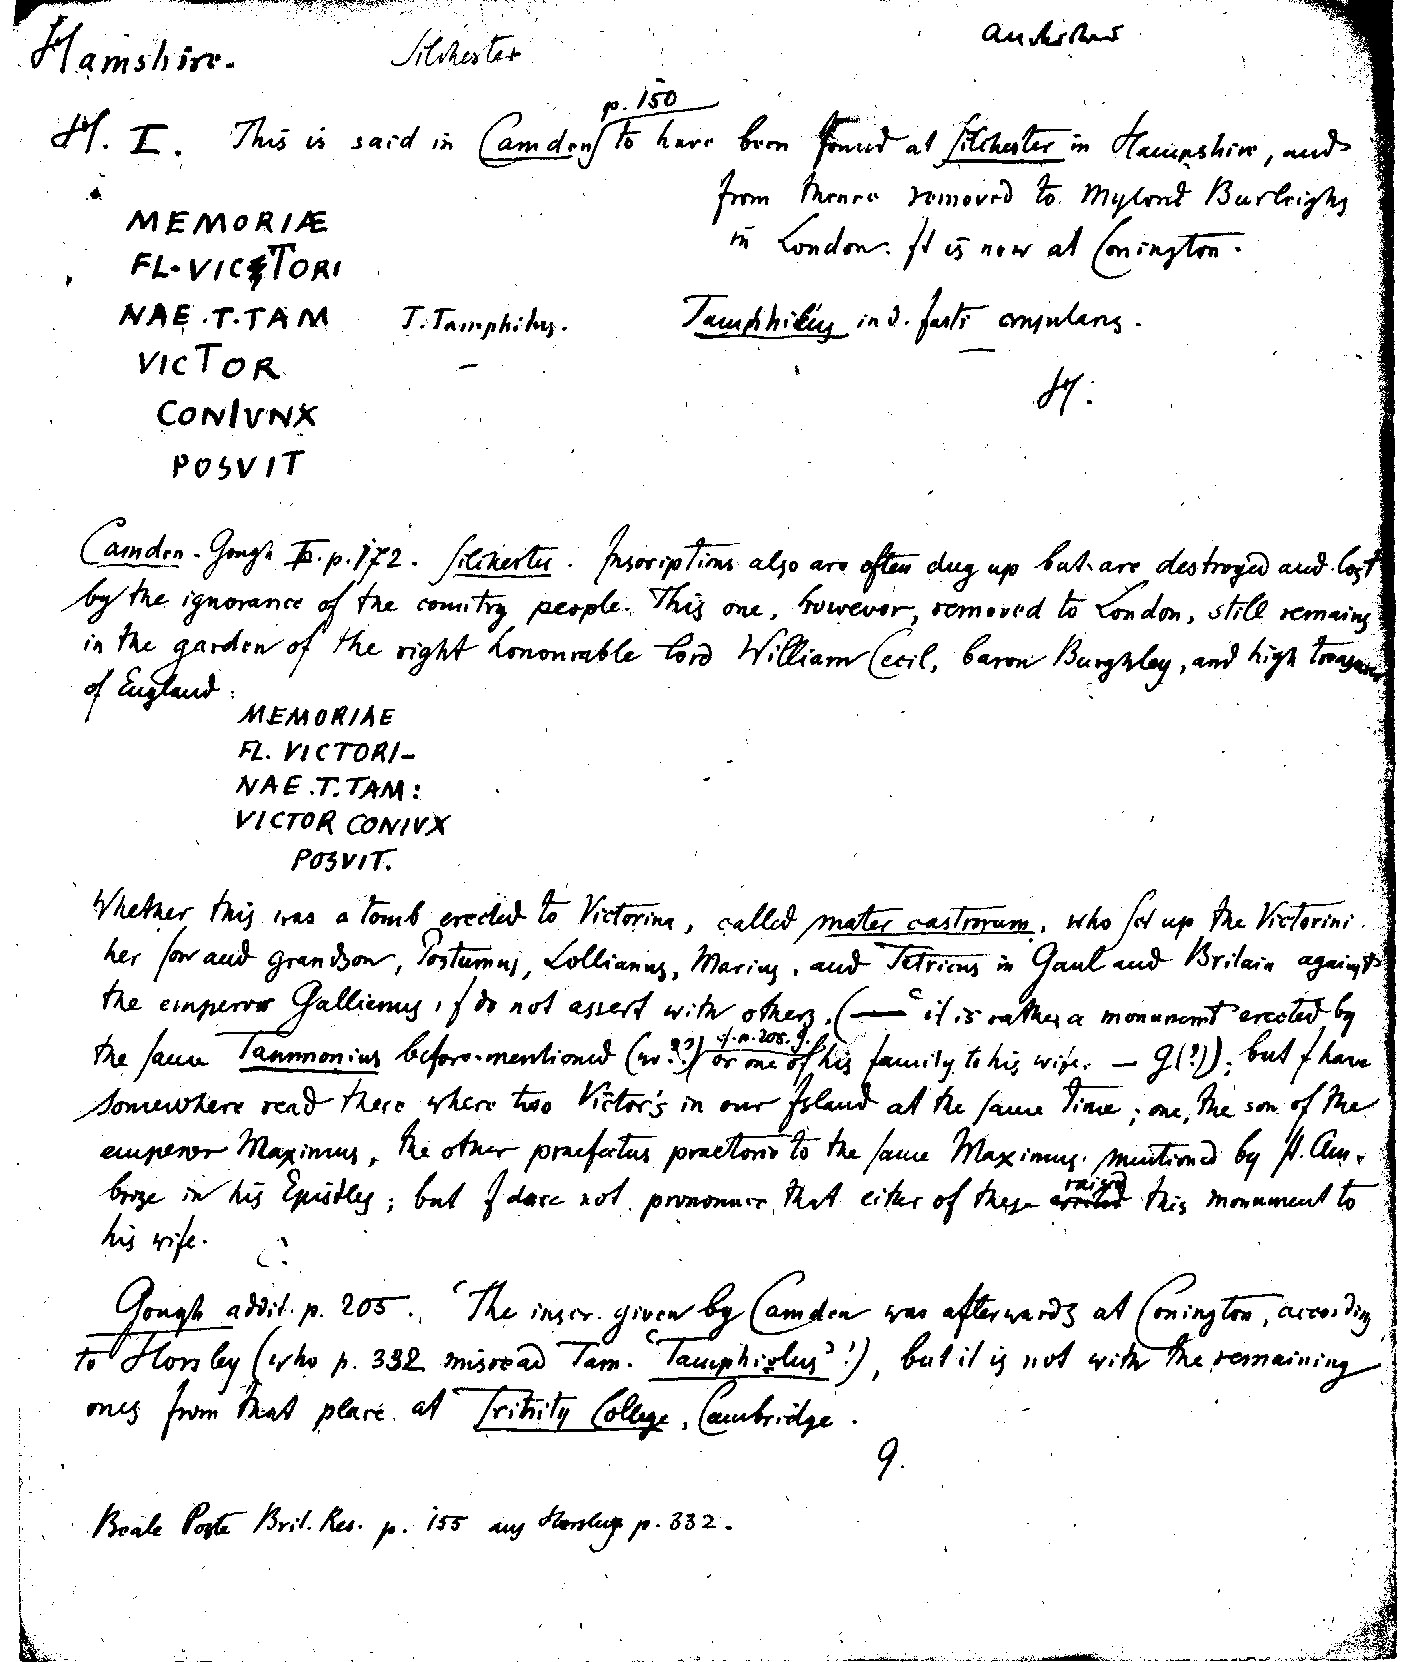 Hamshire.
Silchester
p. 150
H. I. This is said in Camden to have been found at Silchester in Hampshire, and
from thence removed to Mylord Burleighs
in London. It is now at Conington.
MEMORIÆ
FL. VICTORI
NAE . T. TAM
VICTOR
CONIVNX
POSVIT
T. Tamphilus.
Tamphilus in d. fasti consulares.
H.
Camden-Gough I. p. 172. Silchester. Inscriptions also are often dug up but are destroyed and lost
by the ignorance of the country people. This one, however, removed to London, still remains
in the garden of the right honourable lord William Cecil, baron Burghley, and high treasurer
of England:
MEMORIAE
FL. VICTORI-
NAE . T. TAM:
VICTOR CONIVX
POSVIT.
Whether this was a tomb erected to Victorina, called mater castrorum, who set up the Victorini
her son and grandson, Postumus, Lollianus, Marius, and Tetricus in Gaul and Britain against
the emperor Gallienus, I do not assert with others. (— it is rather a monument erected by
cf. p. 205. g.
the same Tammonius before-mentioned (wo??) or one of his family to his wife. — g(?)); but I have
somewhere read there where two Victor's in our Island at the same time; one, the son of the
emperor Maximus, the other praefectus praetorio to the same Maximus mentioned by St. Am-
raised
broze in his Epistles; but I dare not pronounce that either of these erected this monument to
his wife.
C.
Gough addit. p. 205. 'The inscr. given by Camden was afterwards at Conington, according
to Horsley (who p. 332 misread Tam. 'Tamphiolus'!), but it is not with the remaining
ones from that place at Trinity College, Cambridge.
g.
Beale Poste Brit. Res. p. 155 aus Horsley p. 332.